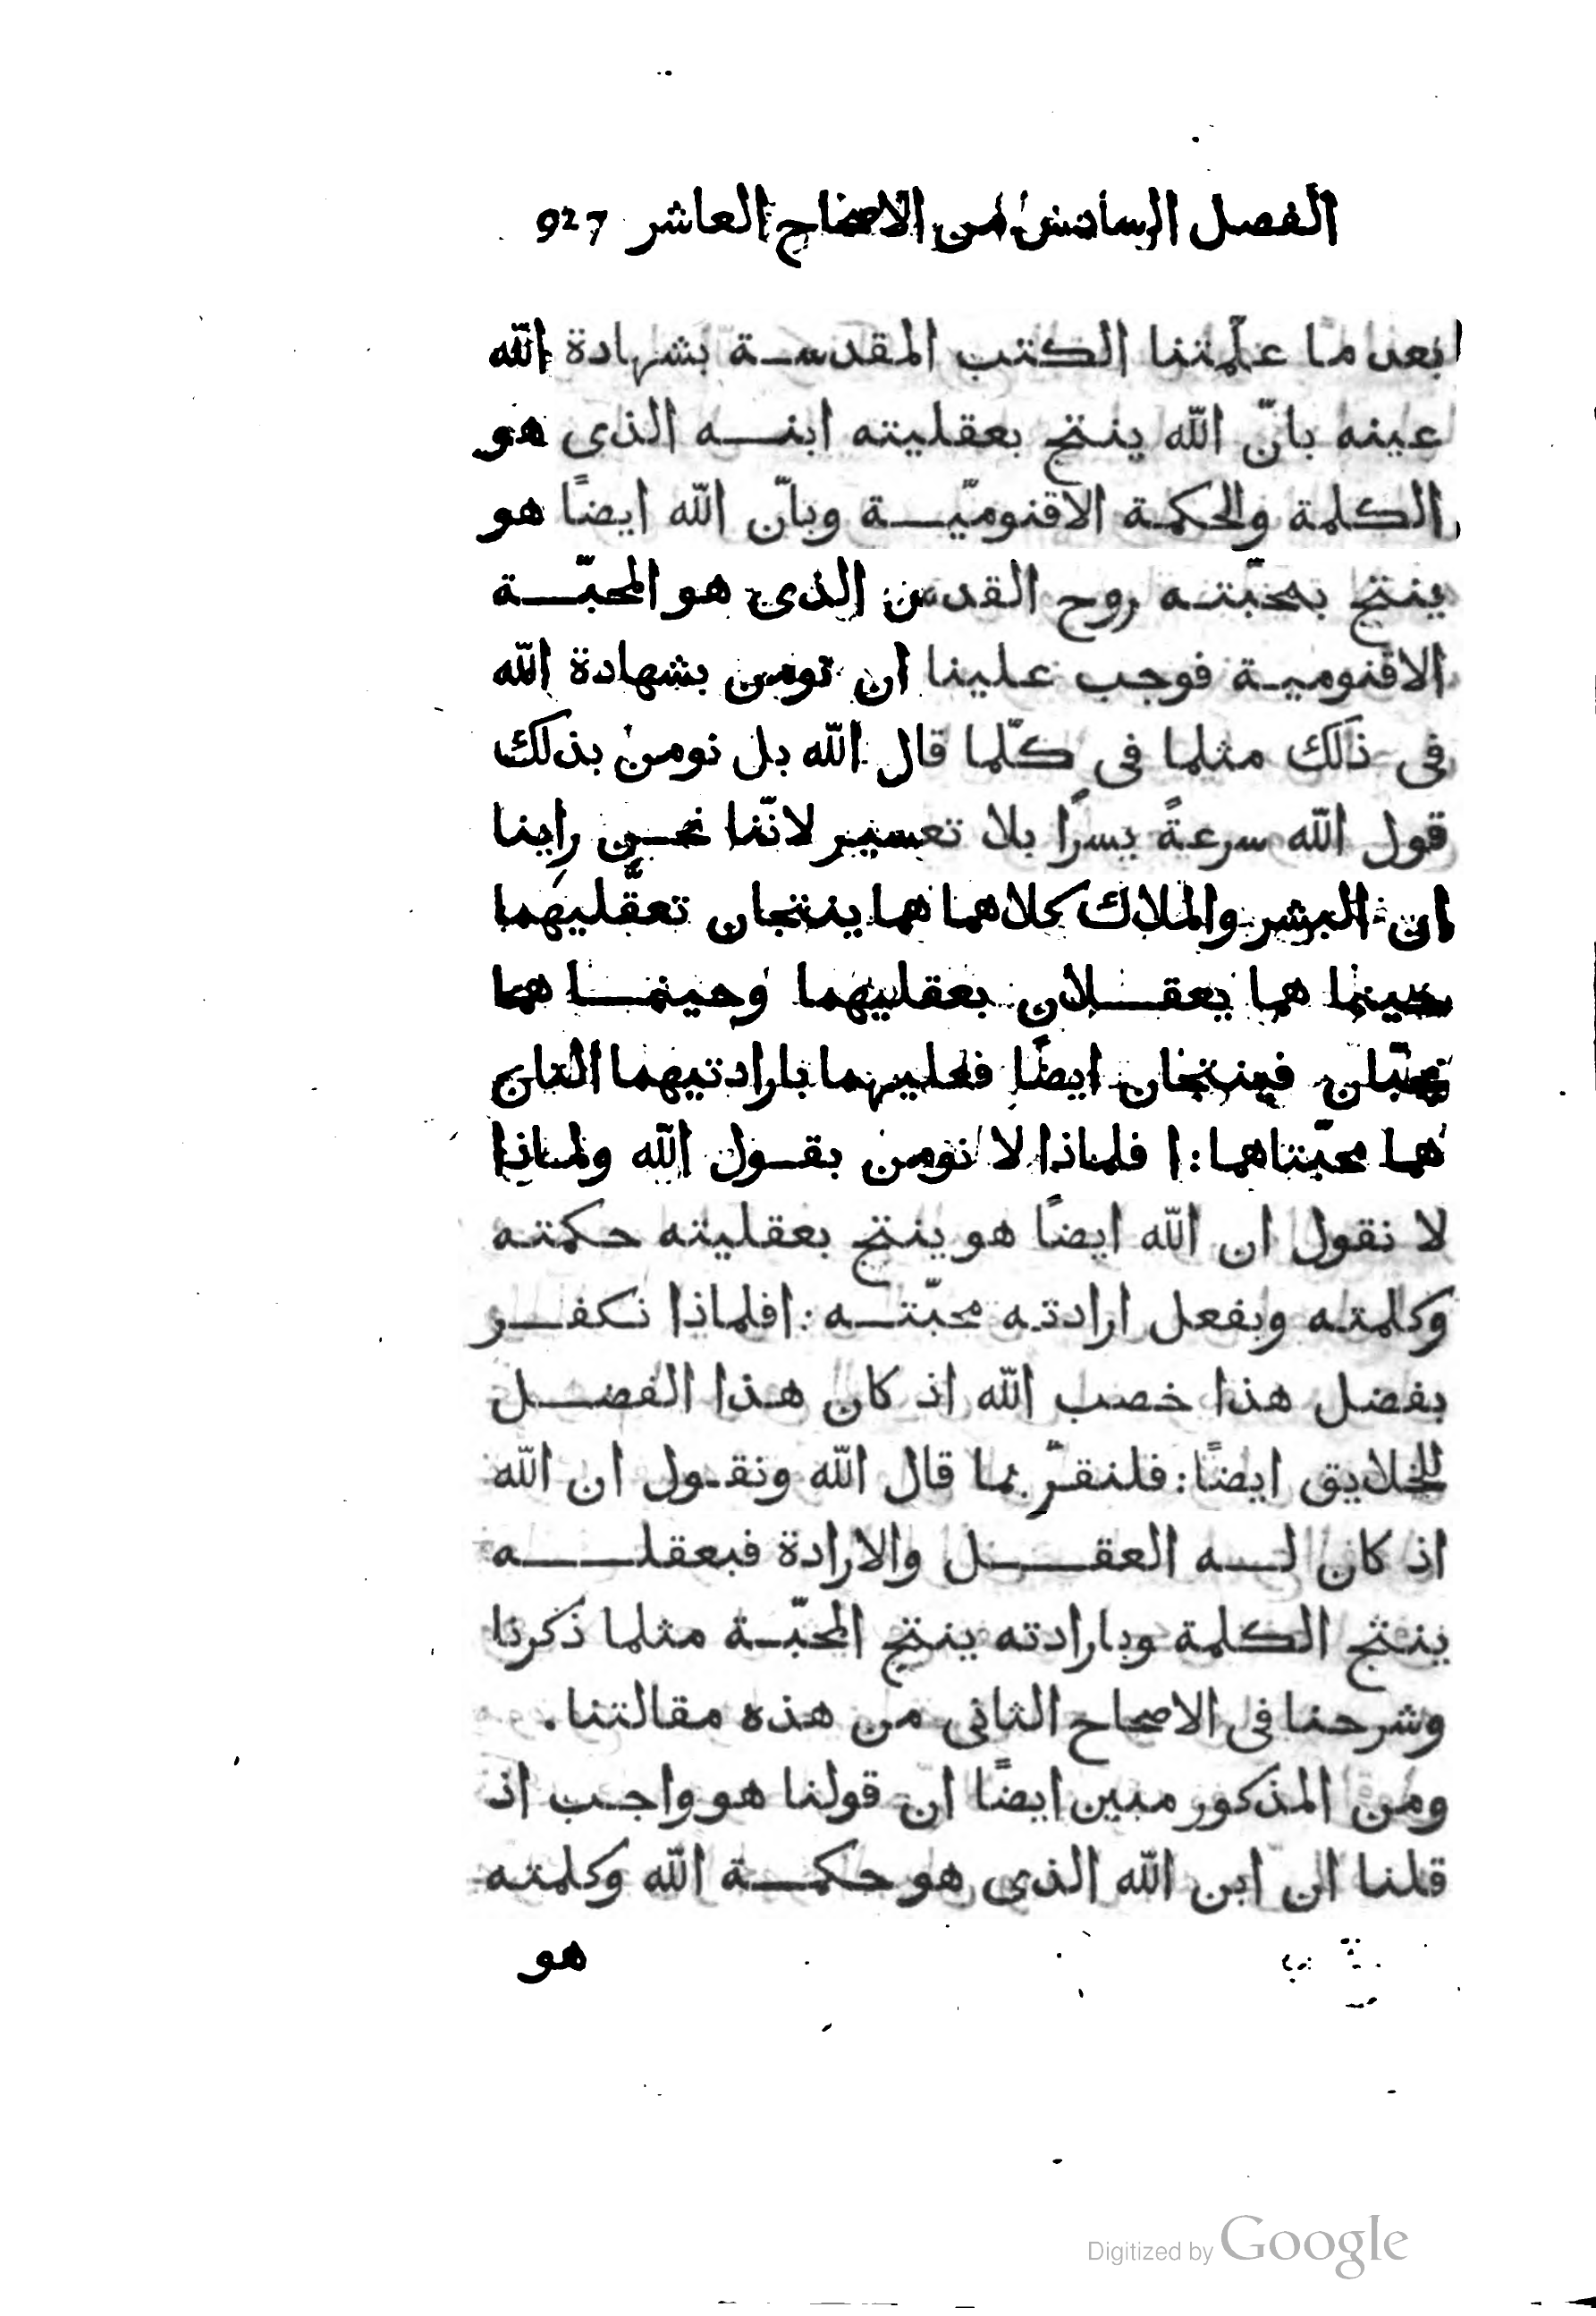 الفصل السادس من الاصحاح العاشر 927
ابعد ما علّمتنا الكتب المقدسة بشهادة الله
عينه بانّ الله ينتج بعقليته ابنه الذى هو
الكلمة والحكمة الاقنوميّة وبانّ الله ايضًا هو
ينتج بمحبّته روح القدس الذى هو المحبّة
الاقنومية فوجب علينا ان نومن بشهادة الله
فى ذلك مثلما فى كلّما قال الله بل نومن بذلك
قول الله سرعةً يسرًا بلا تعسير لانّنا نحن راينا
ان البشر والملاك كلاهما هما ينتجان تعقّليهما
حينما هما يعقلان بعقليهما وحينما هما
يحبّان فينتجان ايضًا فعليهما بارادتيهما التان
هما محبّتاهما: ا فلماذا لا نومن بقول الله ولماذا
لا نقول ان الله ايضًا هو ينتج بعقليته حكمته
وكلمته وبفعل ارادته محبّته: افلماذا نكفر
بفضل هذا خصب الله اذ كان هذا الفضل
للخلايق ايضًا: فلنقرّ بما قال الله ونقول ان الله
اذ كان له العقل والارادة فبعقله
ينتج الكلمة وبارادته ينتج المحبّة مثلما ذكرنا
وشرحنا فى الاصحاح الثانى من هذه مقالتنا.
ومن المذكور مبين ايضًا ان قولنا هو واجب اذ
قلنا ان ابن الله الذى هو حكمة الله وكلمته
هو
Digitized by Google